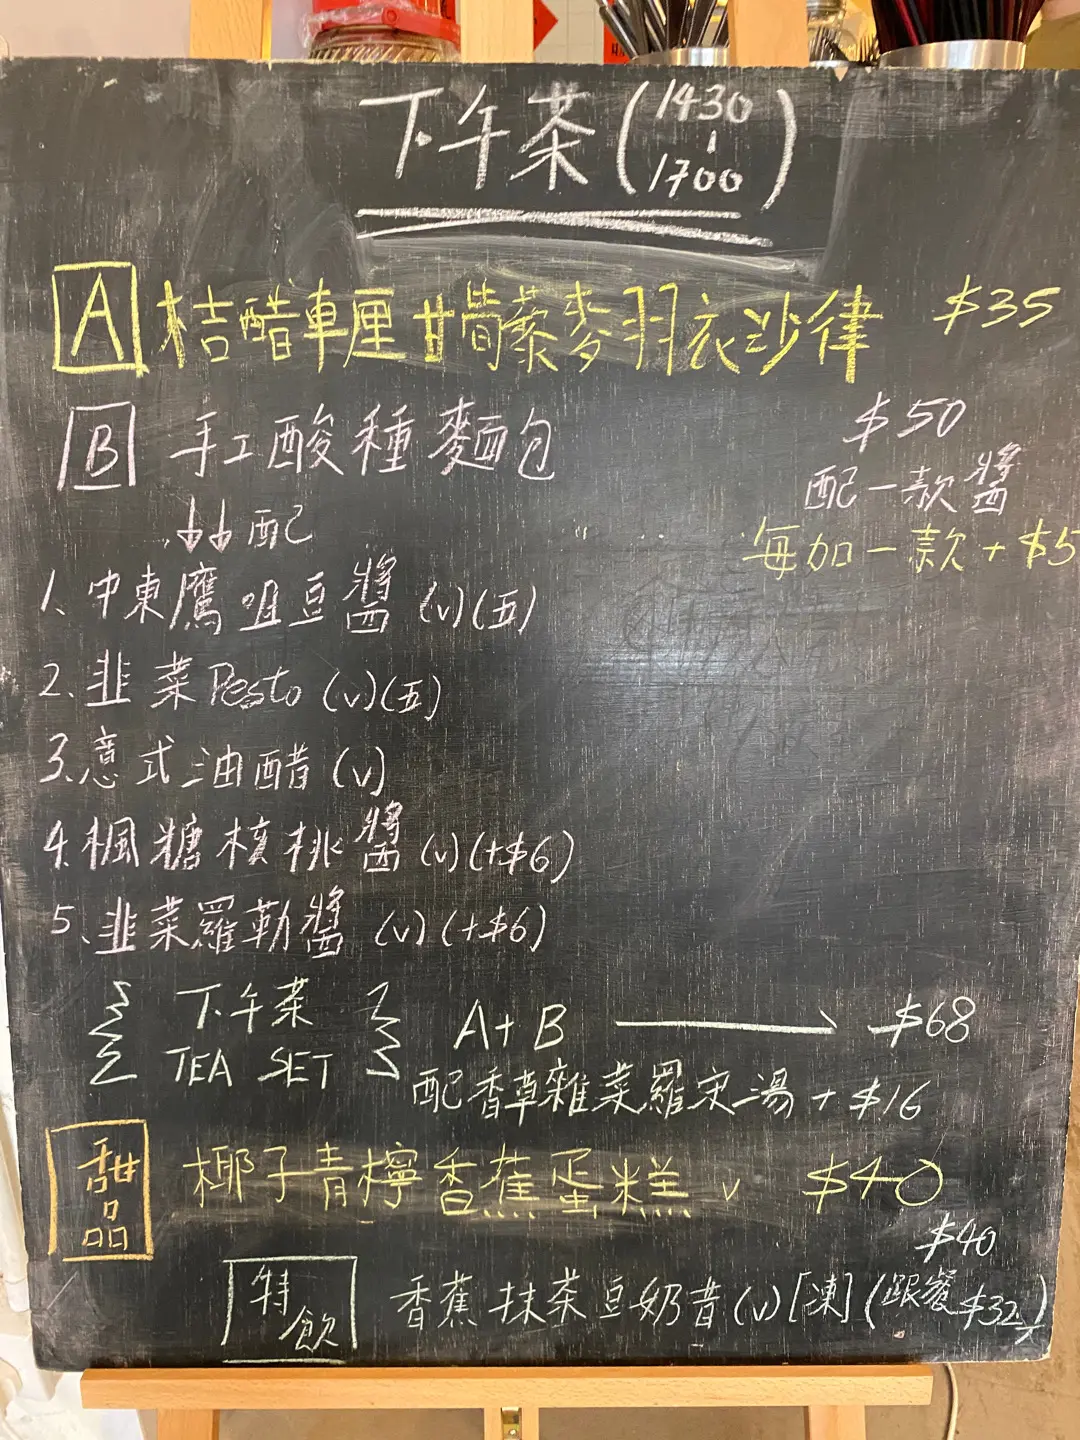 下午茶(1430-1700)
A 桔醋車厘甘筍藜麥羽衣沙律 $35
B 手工酸種麵包 $50
配一款醬
每加一款+$5
配
1、中東鷹咀豆醬(v)(五)
2、韭菜Pesto(v)(五)
3、意式油醋(v)
4、楓糖核桃醬(v)(+$6)
5、韭菜羅勒醬(v)(+$6)
下午茶 TEA SET A+B → $68
配香草雜菜羅宋湯+$16
甜品 椰子青檸香蕉蛋糕 v $40
$40
特飲 香蕉抹茶豆奶昔(v)[凍](跟餐$32)